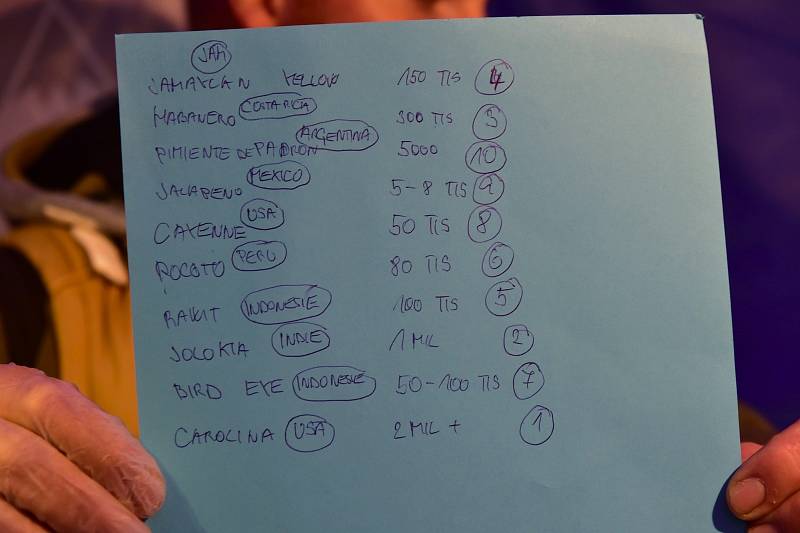 JAM
JAMAYCAN YELLOW 150 TIS 4
HABANERO COSTA RICA 300 TIS 3
PIMIENTE DE PADRON ARGENTINA 5000 10
JALAPENO MEXICO 5-8 TIS 9
CAYENNE USA 50 TIS 8
ROCOTO PERU 80 TIS 6
RAWIT INDONESIE 100 TIS 5
JOLOKIA INDIE 1 MIL 2
BIRD EYE INDONESIE 50-100 TIS 7
CAROLINA USA 2 MIL + 1